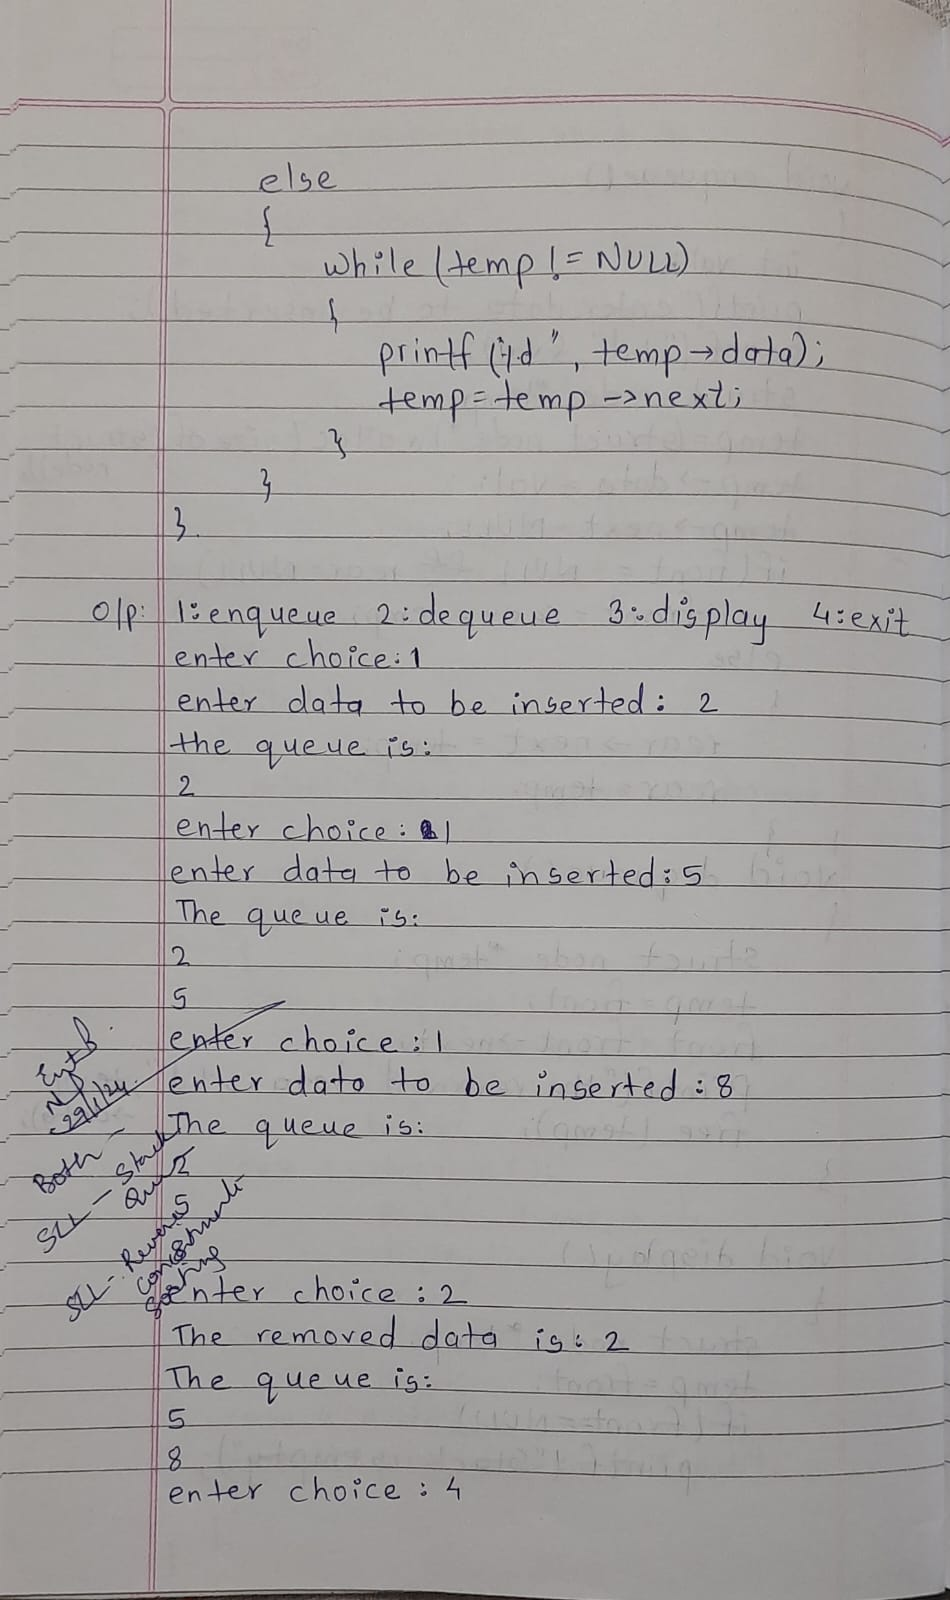 else
{
while (temp != NULL)
{
printf ("%d", temp→data);
temp = temp →next;
}
}
}.
O/p: 1:enqueue 2:dequeue 3:display 4:exit
enter choice:1
enter data to be inserted: 2
the queue is:
2
enter choice: 1
enter data to be inserted: 5
The queue is:
2
5
enter choice: 1
enter data to be inserted : 8
The queue is:
2
5
8
enter choice : 2
The removed data is: 2
The queue is:
5
8
enter choice : 4
29/1/24
Both –
SLL – Stack
SLL – Reverse
Sorting